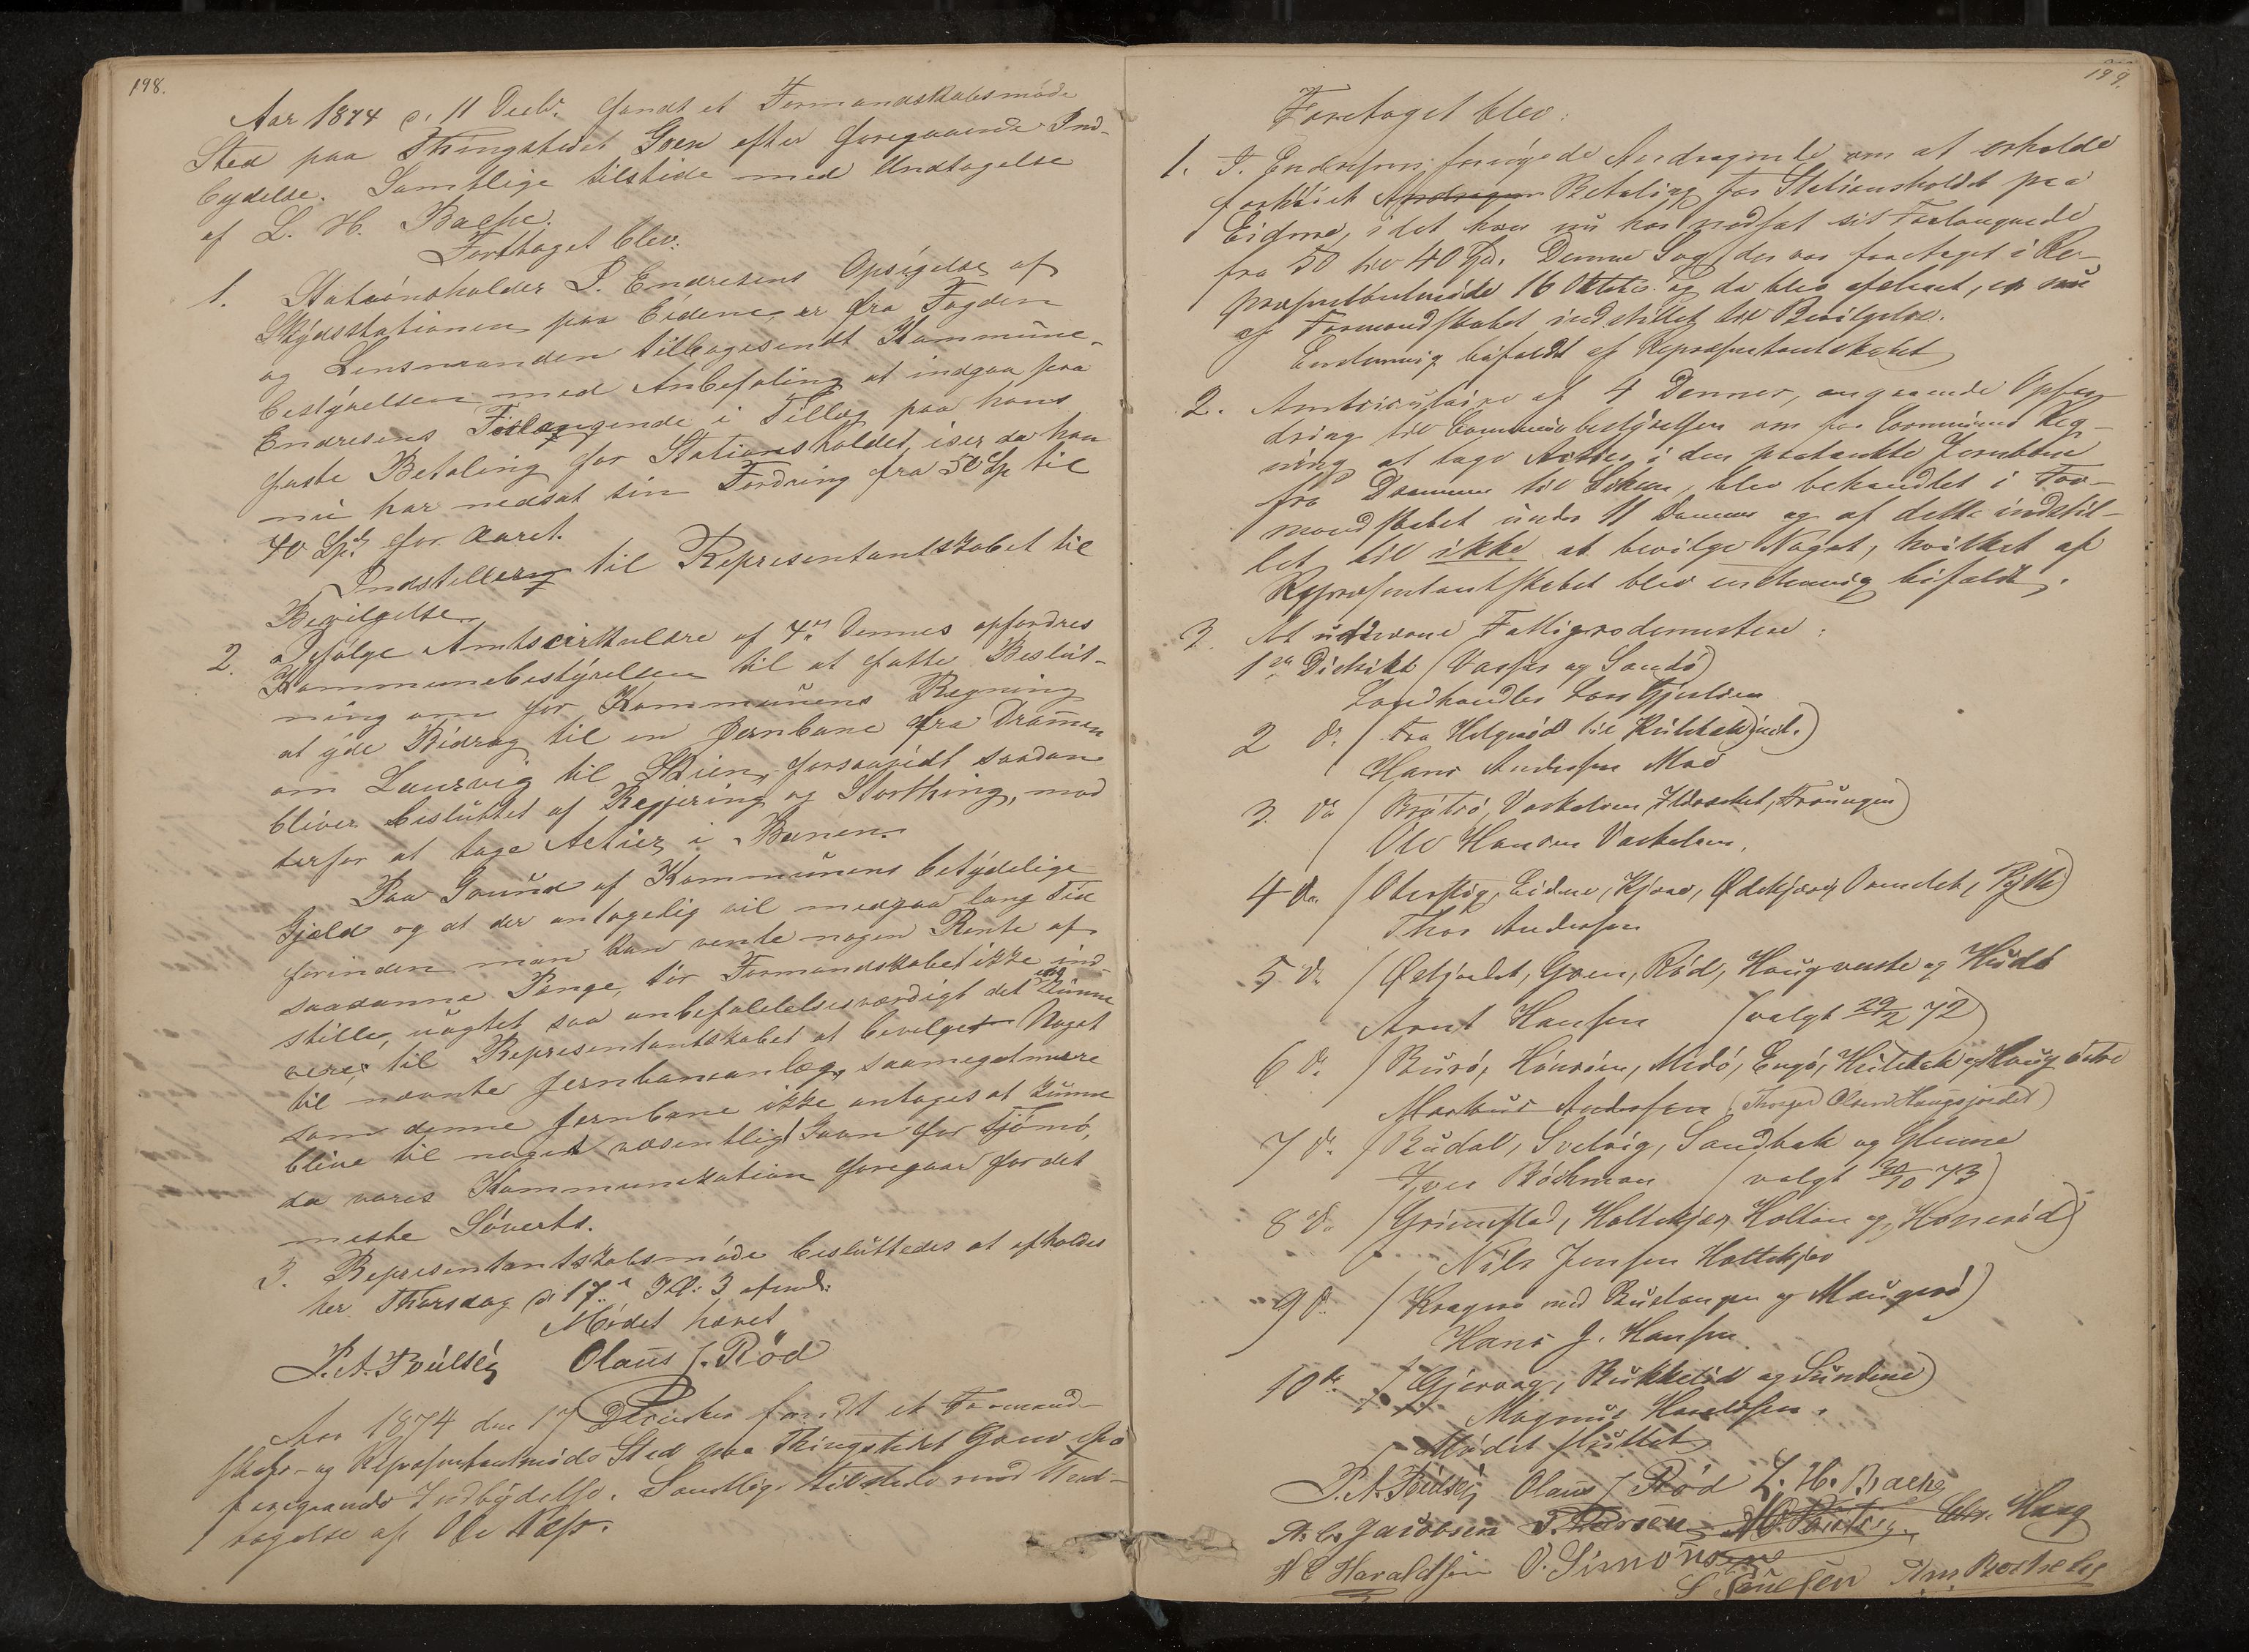 198.
Aar 1874 d. 11 Decbr. fandt et Formandskabsmöde
Sted paa Thingstedet Goen efter foregaaende Ind-
bydelse. Samtlige tilstede med Undtagelse
af L. H. Backe.
Forethaget blev:
1. Stationsholder I. Endresens Opsigelse af
Skydsstationen paa Eidene er fra Fogden
og Lensmanden tilbagesendt Kommune-
bestyrelsen med Anbefaling at indgaa paa
Endresens Forlangende i Tillæg paa hans
faste Betaling for Stationsholdet, især da han
nu har nedsat sin Fordring fra 50 Sp. til
40 Spd. for Aaret.
Indstilles til Representantskabet til
Bevilgelse.
2. Ifölge Amtscirkulære af 4de Dennes opfordres
Kommunebestyrelsen til at fatte Beslut-
ning om for Kommunens Regning
at yde Bidrag til en Jernbane fra Drammen
om Laurvig til Skien, forsaavidt saadan
bliver besluttet af Regjering og Storthing, mod
derfor at tage Actier i Banen.
Paa Grund af Kommunens betydelige
Gjæld og at der antagelig vil medgaa lang Tid
forinden man kan vente nogen Rente af
saadanne Penge, tör Formandskabet ikke ind-
stille, uagtet saa anbefalelsesværdigt det end kunne
være, til Representantskabet at bevilget Noget
til nævnte Jernbaneanlæg, saameget mere
som denne Jernbane ikke antages at kunne
blive til noget væsentligt Gavn for Tjömö,
da vores Kommunikation foregaar for det
meste Söverts.
3. Representantskabsmöde besluttedes at afholdes
her Thorsdag d. 17de Kl. 3 efmd.
Mödet hævet
P. A. Poulsen Olaus J. Röd
Aar 1874 den 17 December fandt et Formand-
skabs- og Repræsentantmöde Sted paa Thingstedet Goen efter
foregaaende Indbydelse. Samtlige tilstede med Und-
tagelse af Ole Næss.
199.
Foretaget blev:
1. I. Endresens fornyede Andragende om at erholde
forhöiet Andragen Betaling for Stationsholdet paa
Eidene, idet han nu har nedsat sit Forlangende
fra 50 til 40 Spd. Denne Sag der var foretaget i Re-
præsentantmöde 16 Oktober og da blev afslaaet, er nu
af Formandskabet indstillet til Bevilgelse.
Enstemmig bifaldt af Repræsentantskabet
2. Amtscirculaire af 4 Dennes, angaaende Opfor-
dring til Communebestyrelsen om for Communens Reg-
ning at tage Actier i den paatænkte Jernbane
fra Drammen til Skien, blev behandlet i For-
mandskabet under 11 Dennes og af dette indstil-
let til ikke at bevilge Noget, hvilket af
Repræsentantskabet blev enstemmig bifaldt.
3. At udnævne Fattigrodemestere:
1ste Distrikt (Vasser og Sandö)
Landhandler Lars Gjertsen
2 do. (Fra Helgeröd til Kulebak incl.)
Hans Andersen Moe
3. do (Bråtö, Vaskalven, Ildvaket, Frounger)
Ole Hansen Vaskalven.
4 do. (Oterstig, Eidene, Kjære, Ödekjær, Ormelet, Pytte)
Thor Andersen
5 do. (Östjordet, Goen, Röd, Haug vestre og Hudö
Arnt Hansen (valgt 29/2 72)
6 do. (Burö, Hönsöen, Medö, Engö, Kulebak og Haug östre
Markus Andersen (Thorger Olsen Haugsjordet)
7 do. (Budal, Svelvig, Sandbæk og Glenne
Iver Böckman (valgt 30/10 73)
8 do. (Grimestad, Holtekjær, Holtan og Honneröd)
Nils Jensen Holtekjær
9 do. (Kragerö med Buslangen og Maugerö)
Hans J. Hansen
10 do. (Gjervaag, Bukkelid og Sundene)
Magnus Haraldsen.
Mödet sluttet
P. A. Poulsen Olaus J. Röd L. H. Backe
A. C. Jacobsen Chr. Haug
H C Haraldsen O. Simonsen
S Poulsen